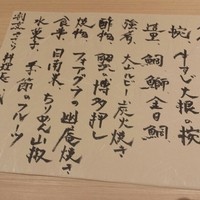 椀 牛すじ大根の椀
造里 鯛 鰤 金目鯛
強肴 大山ルビー炭火焼き
酢物 蟹の博多押し
焼物 フォアグラの幽庵焼き
食事 白南米 ちりめん山椒
水菓子 季節のフルーツ
料理長